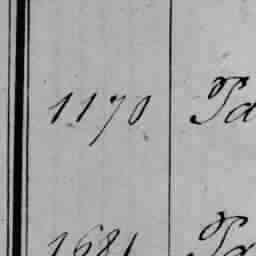 1170 Pa
1681 Pa